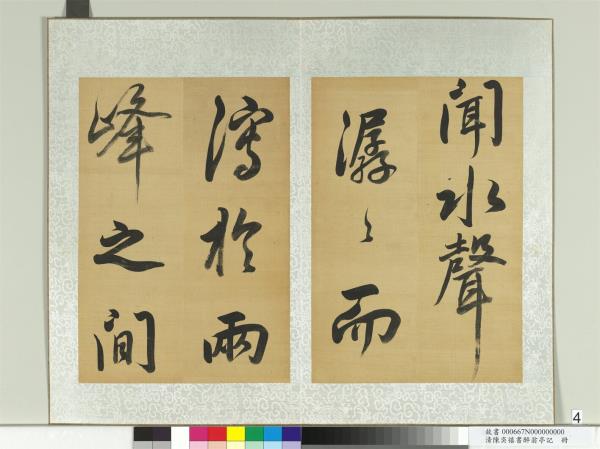 聞水聲
潺〻而
瀉於兩
峰之間
4
故書 000667N000000000
清陳奕禧書醉翁亭記 冊